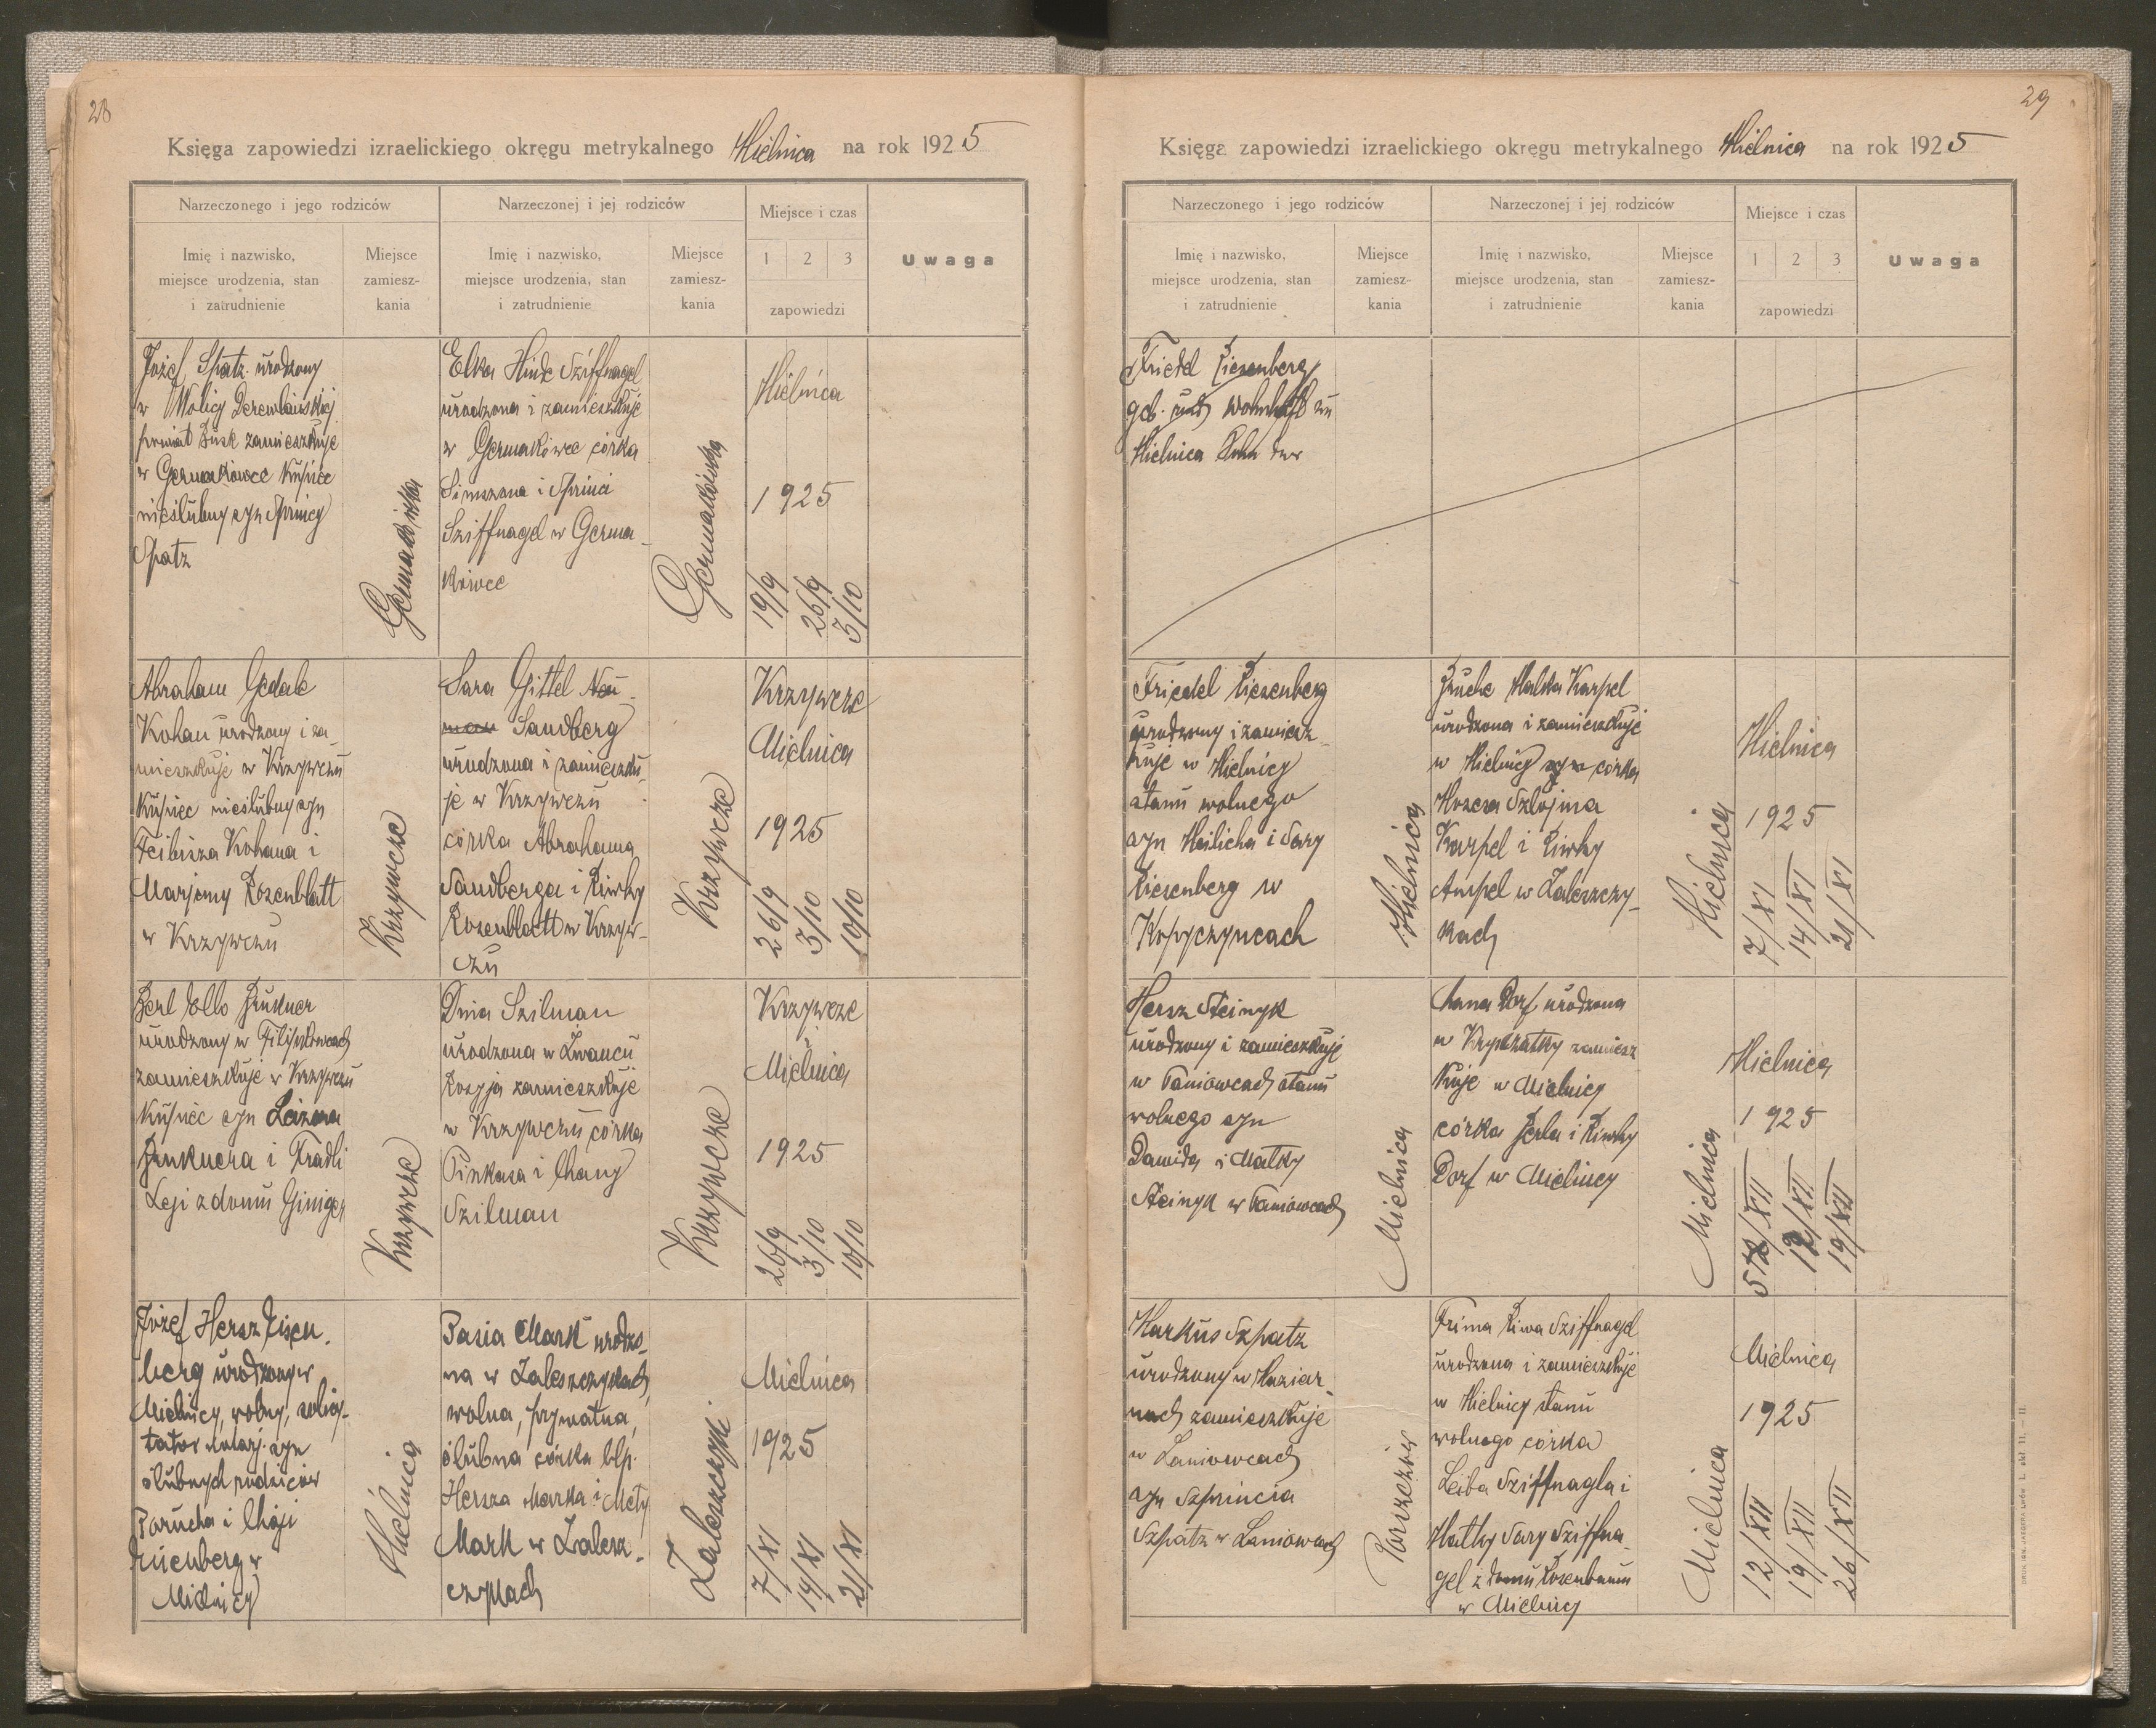 28
Księga zapowiedzi izraelickiego okręgu metrykalnego Mielnica na rok 1925
Narzeczonego i jego rodziców
Narzeczonej i jej rodziców
Miejsce i czas
Imię i nazwisko,
miejsce urodzenia, stan
i zatrudnienie
Miejsce
zamiesz-
kania
Imię i nazwisko,
miejsce urodzenia, stan
i zatrudnienie
Miejsce
zamiesz-
kania
1 2 3
zapowiedzi
Uwaga
Józef Spatz urodzony
w Wolicy Derewlańskiej
powiat Busk zamieszkuje
w Germakówce Kupiec
nieślubny syn Sprincy
Spatz
Germakówka
Elka Hinde Sziffnagel
urodzona i zamieszkuje
w Germakówce córka
Simszona i Sprinci
Sziffnagel w Germa-
kówce
Germakówka
Mielnica
1925
19/9
26/9
3/10
Abraham Gedale
Kohan urodzony i za-
mieszkuje w Krzywczu
Kupiec nieślubny syn
Feibisza Kohana i
Marjemy Rozenblatt
w Krzywczu
Krzywcze
Sara Gittel Neu-
man Sandberg
urodzona i zamieszku-
je w Krzywczu
córka Abrahama
Sandberga i Riwky
Rosenblatt w Krzyw-
czu
Krzywcze
Krzywcze
Mielnica
1925
26/9
3/10
10/10
Berl Ello Drukner
urodzony w Filipkowcach
zamieszkuje w Krzywczu
Kupiec syn Leizora
Druknera i Fradli
Leji z domu Giniger
Krzywcze
Dina Szilman
urodzona w Żwańcu
Rosyja zamieszkuje
w Krzywczu córka
Pinkasa i Chany
Szilman
Krzywcze
Krzywcze
Mielnica
1925
26/9
3/10
10/10
Józef Hersz Risen-
berg urodzony w
Mielnicy, wolny, solicy-
tator notarj. syn
ślubnych rodziców
Barucha i Chaji
Risenberg w
Mielnicy
Mielnica
Basia Mark urodzo-
na w Zaleszczykach,
wolna, prywatna,
ślubna córka błp.
Hersza Marka i Mety
Mark w Zalesz-
czykach
Zaleszczyki
Mielnica
1925
7/XI
14/XI
21/XI
29
Księga zapowiedzi izraelickiego okręgu metrykalnego Mielnica na rok 1925
Narzeczonego i jego rodziców
Narzeczonej i jej rodziców
Miejsce i czas
Imię i nazwisko,
miejsce urodzenia, stan
i zatrudnienie
Miejsce
zamiesz-
kania
Imię i nazwisko,
miejsce urodzenia, stan
i zatrudnienie
Miejsce
zamiesz-
kania
1 2 3
zapowiedzi
Uwaga
Friedel Riesenberg
geb. und wohnhaft zu
Mielnica
Friedel Riesenberg
urodzony i zamiesz-
kuje w Mielnicy
stanu wolnego
syn Meilicha i Sary
Riesenberg w
Kopyczyncach
Mielnica
Bruche Malka Karpel
urodzona i zamieszkuje
w Mielnicy syn córka
Mozesa Szlojma
Karpel i Riwky
Ampel w Zaleszczy-
kach
Mielnica
Mielnica
1925
7/XI
14/XI
21/XI
Hersz Steinyk
urodzony i zamieszkuje
w Paniowcach stanu
wolnego syn
Dawida i Matky
Steinyk w Paniowcach
Mielnica
Chana Dorf urodzona
w zamiesz
kuje w Mielnicy
córka Berla i Riwky
Dorf w Mielnicy
Mielnica
Mielnica
1925
5/XII
12/XII
19/XII
Markus Szpatz
urodzony w
zamieszkuje
w Laniowcach
syn Szprincia
Szpatz w Laniowcach
Borszczów
Frima Riwa Sziffnagel
urodzona i zamieszkuje
w Mielnicy stanu
wolnego córka
Leiba Sziffnagla i
Matky Sary Sziffna-
gel z domu Rosenbaum
w Mielnicy
Mielnica
Mielnica
1925
12/XII
19/XII
26/XII